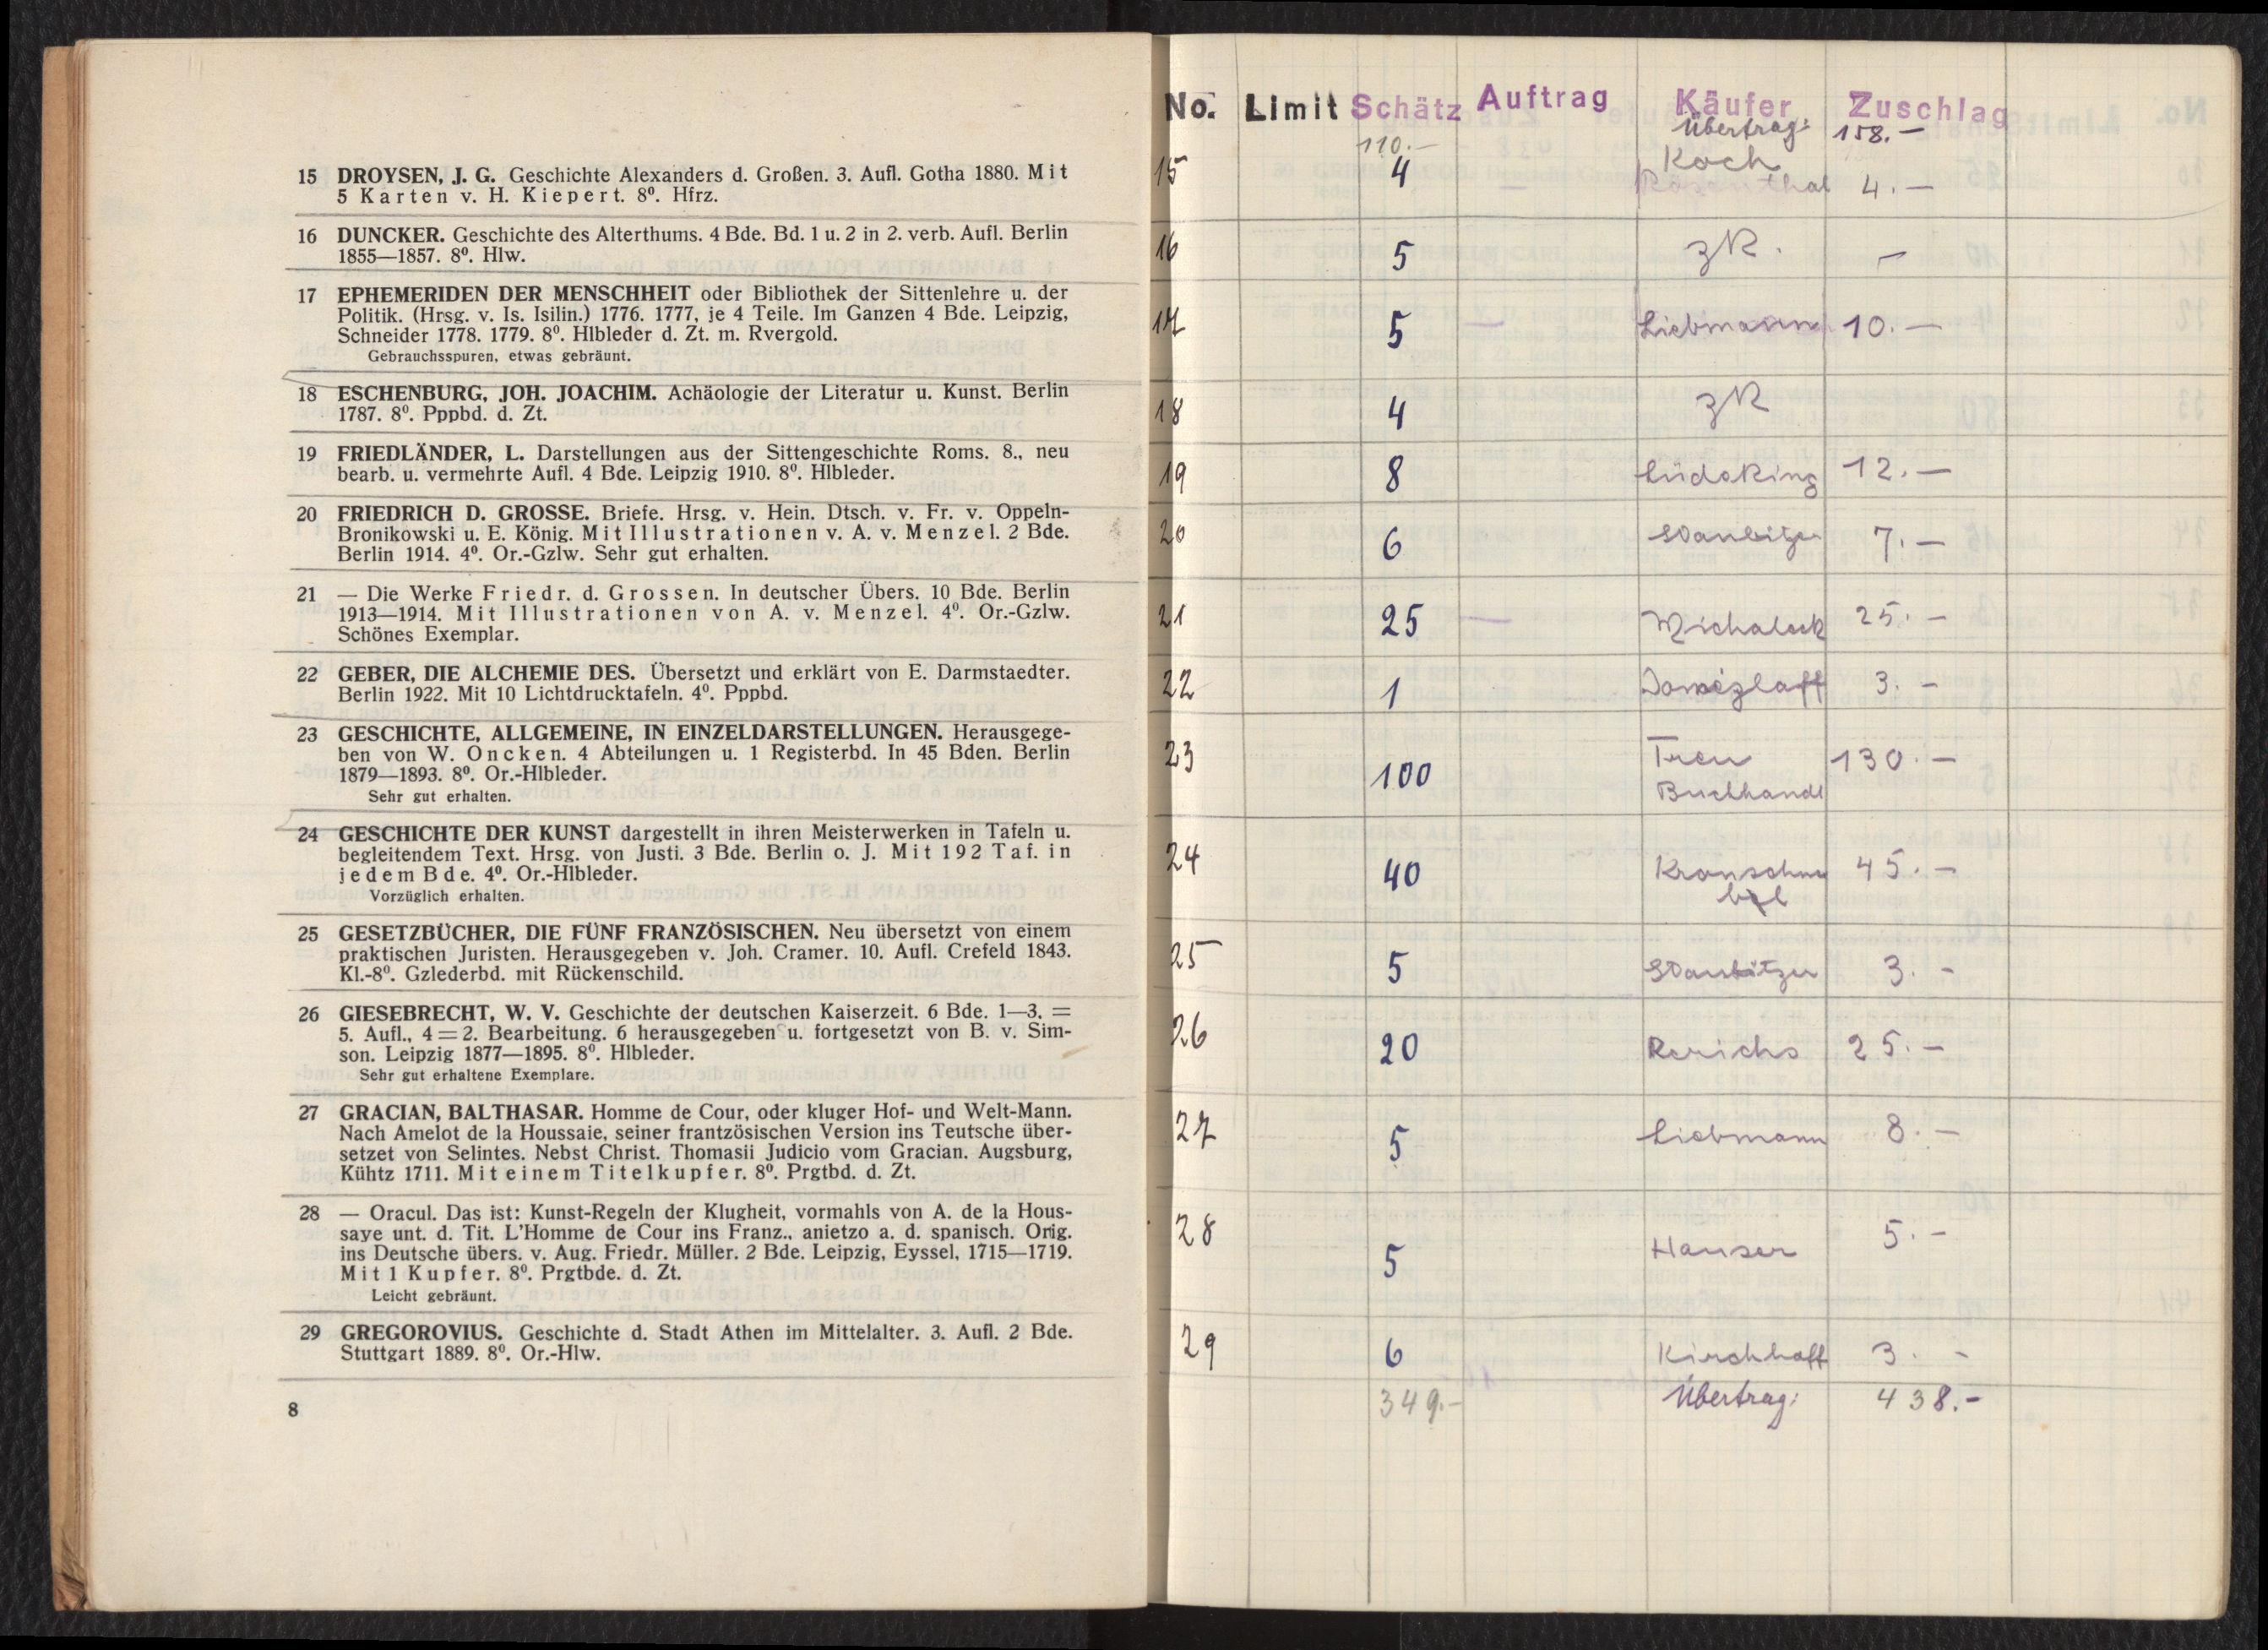 15 DROYSEN, J. G. Geschichte Alexanders d. Großen. 3. Aufl. Gotha 1880. Mit
5 Karten v. H. Kiepert. 8⁰. Hfrz.
16 DUNCKER. Geschichte des Alterthums. 4 Bde. Bd. 1 u. 2 in 2. verb. Aufl. Berlin
1855—1857. 8⁰. Hlw.
17 EPHEMERIDEN DER MENSCHHEIT oder Bibliothek der Sittenlehre u. der
Politik. (Hrsg. v. Is. Isilin.) 1776. 1777, je 4 Teile. Im Ganzen 4 Bde. Leipzig,
Schneider 1778. 1779. 8⁰. Hlbleder d. Zt. m. Rvergold.
Gebrauchsspuren, etwas gebräunt.
18 ESCHENBURG, JOH. JOACHIM. Achäologie der Literatur u. Kunst. Berlin
1787. 8⁰. Pppbd. d. Zt.
19 FRIEDLÄNDER, L. Darstellungen aus der Sittengeschichte Roms. 8., neu
bearb. u. vermehrte Aufl. 4 Bde. Leipzig 1910. 8⁰. Hlbleder.
20 FRIEDRICH D. GROSSE. Briefe. Hrsg. v. Hein. Dtsch. v. Fr. v. Oppeln-
Bronikowski u. E. König. Mit Illustrationen v. A. v. Menzel. 2 Bde.
Berlin 1914. 4⁰. Or.-Gzlw. Sehr gut erhalten.
21 — Die Werke Friedr. d. Grossen. In deutscher Übers. 10 Bde. Berlin
1913—1914. Mit Illustrationen von A. v. Menzel. 4⁰. Or.-Gzlw.
Schönes Exemplar.
22 GEBER, DIE ALCHEMIE DES. Übersetzt und erklärt von E. Darmstaedter.
Berlin 1922. Mit 10 Lichtdrucktafeln. 4⁰. Pppbd.
23 GESCHICHTE, ALLGEMEINE, IN EINZELDARSTELLUNGEN. Herausgege-
ben von W. Oncken. 4 Abteilungen u. 1 Registerbd. In 45 Bden. Berlin
1879—1893. 8⁰. Or.-Hlbleder.
Sehr gut erhalten.
24 GESCHICHTE DER KUNST dargestellt in ihren Meisterwerken in Tafeln u.
begleitendem Text. Hrsg. von Justi. 3 Bde. Berlin o. J. Mit 192 Taf. in
jedem Bde. 4⁰. Or.-Hlbleder.
Vorzüglich erhalten.
25 GESETZBÜCHER, DIE FÜNF FRANZÖSISCHEN. Neu übersetzt von einem
praktischen Juristen. Herausgegeben v. Joh. Cramer. 10. Aufl. Crefeld 1843.
Kl.-8⁰. Gzlederbd. mit Rückenschild.
26 GIESEBRECHT, W. V. Geschichte der deutschen Kaiserzeit. 6 Bde. 1—3. =
5. Aufl., 4 = 2. Bearbeitung. 6 herausgegeben u. fortgesetzt von B. v. Sim-
son. Leipzig 1877—1895. 8⁰. Hlbleder.
Sehr gut erhaltene Exemplare.
27 GRACIAN, BALTHASAR. Homme de Cour, oder kluger Hof- und Welt-Mann.
Nach Amelot de la Houssaie, seiner frantzösischen Version ins Teutsche über-
setzet von Selintes. Nebst Christ. Thomasii Judicio vom Gracian. Augsburg,
Kühtz 1711. Mit einem Titelkupfer. 8⁰. Prgtbd. d. Zt.
28 — Oracul. Das ist: Kunst-Regeln der Klugheit, vormahls von A. de la Hous-
saye unt. d. Tit. L'Homme de Cour ins Franz., anietzo a. d. spanisch. Orig.
ins Deutsche übers. v. Aug. Friedr. Müller. 2 Bde. Leipzig, Eyssel, 1715—1719.
Mit 1 Kupfer. 8⁰. Prgtbde. d. Zt.
Leicht gebräunt.
29 GREGOROVIUS. Geschichte d. Stadt Athen im Mittelalter. 3. Aufl. 2 Bde.
Stuttgart 1889. 8⁰. Or.-Hlw.
8
No. Limit Schätz Auftrag Käufer Zuschlag
110.— Übertrag: 158.—
15 4 Koch
Rosenthal 4.—
16 5 zR. —
17 5 — Liebmann 10.—
18 4 zR
19 8 Lüdeking 12.—
20 6 7.—
21 25 — 25.—
22 1 3.—
23 100 Treu 130.—
Buchhandl
24 40 45.—
25 5 3.-
26 20 25.—
27 5 Liebmann 8.—
28 5 Hauser 5.—
29 6 Kirchhoff 3.-
349.- Übertrag: 438.-